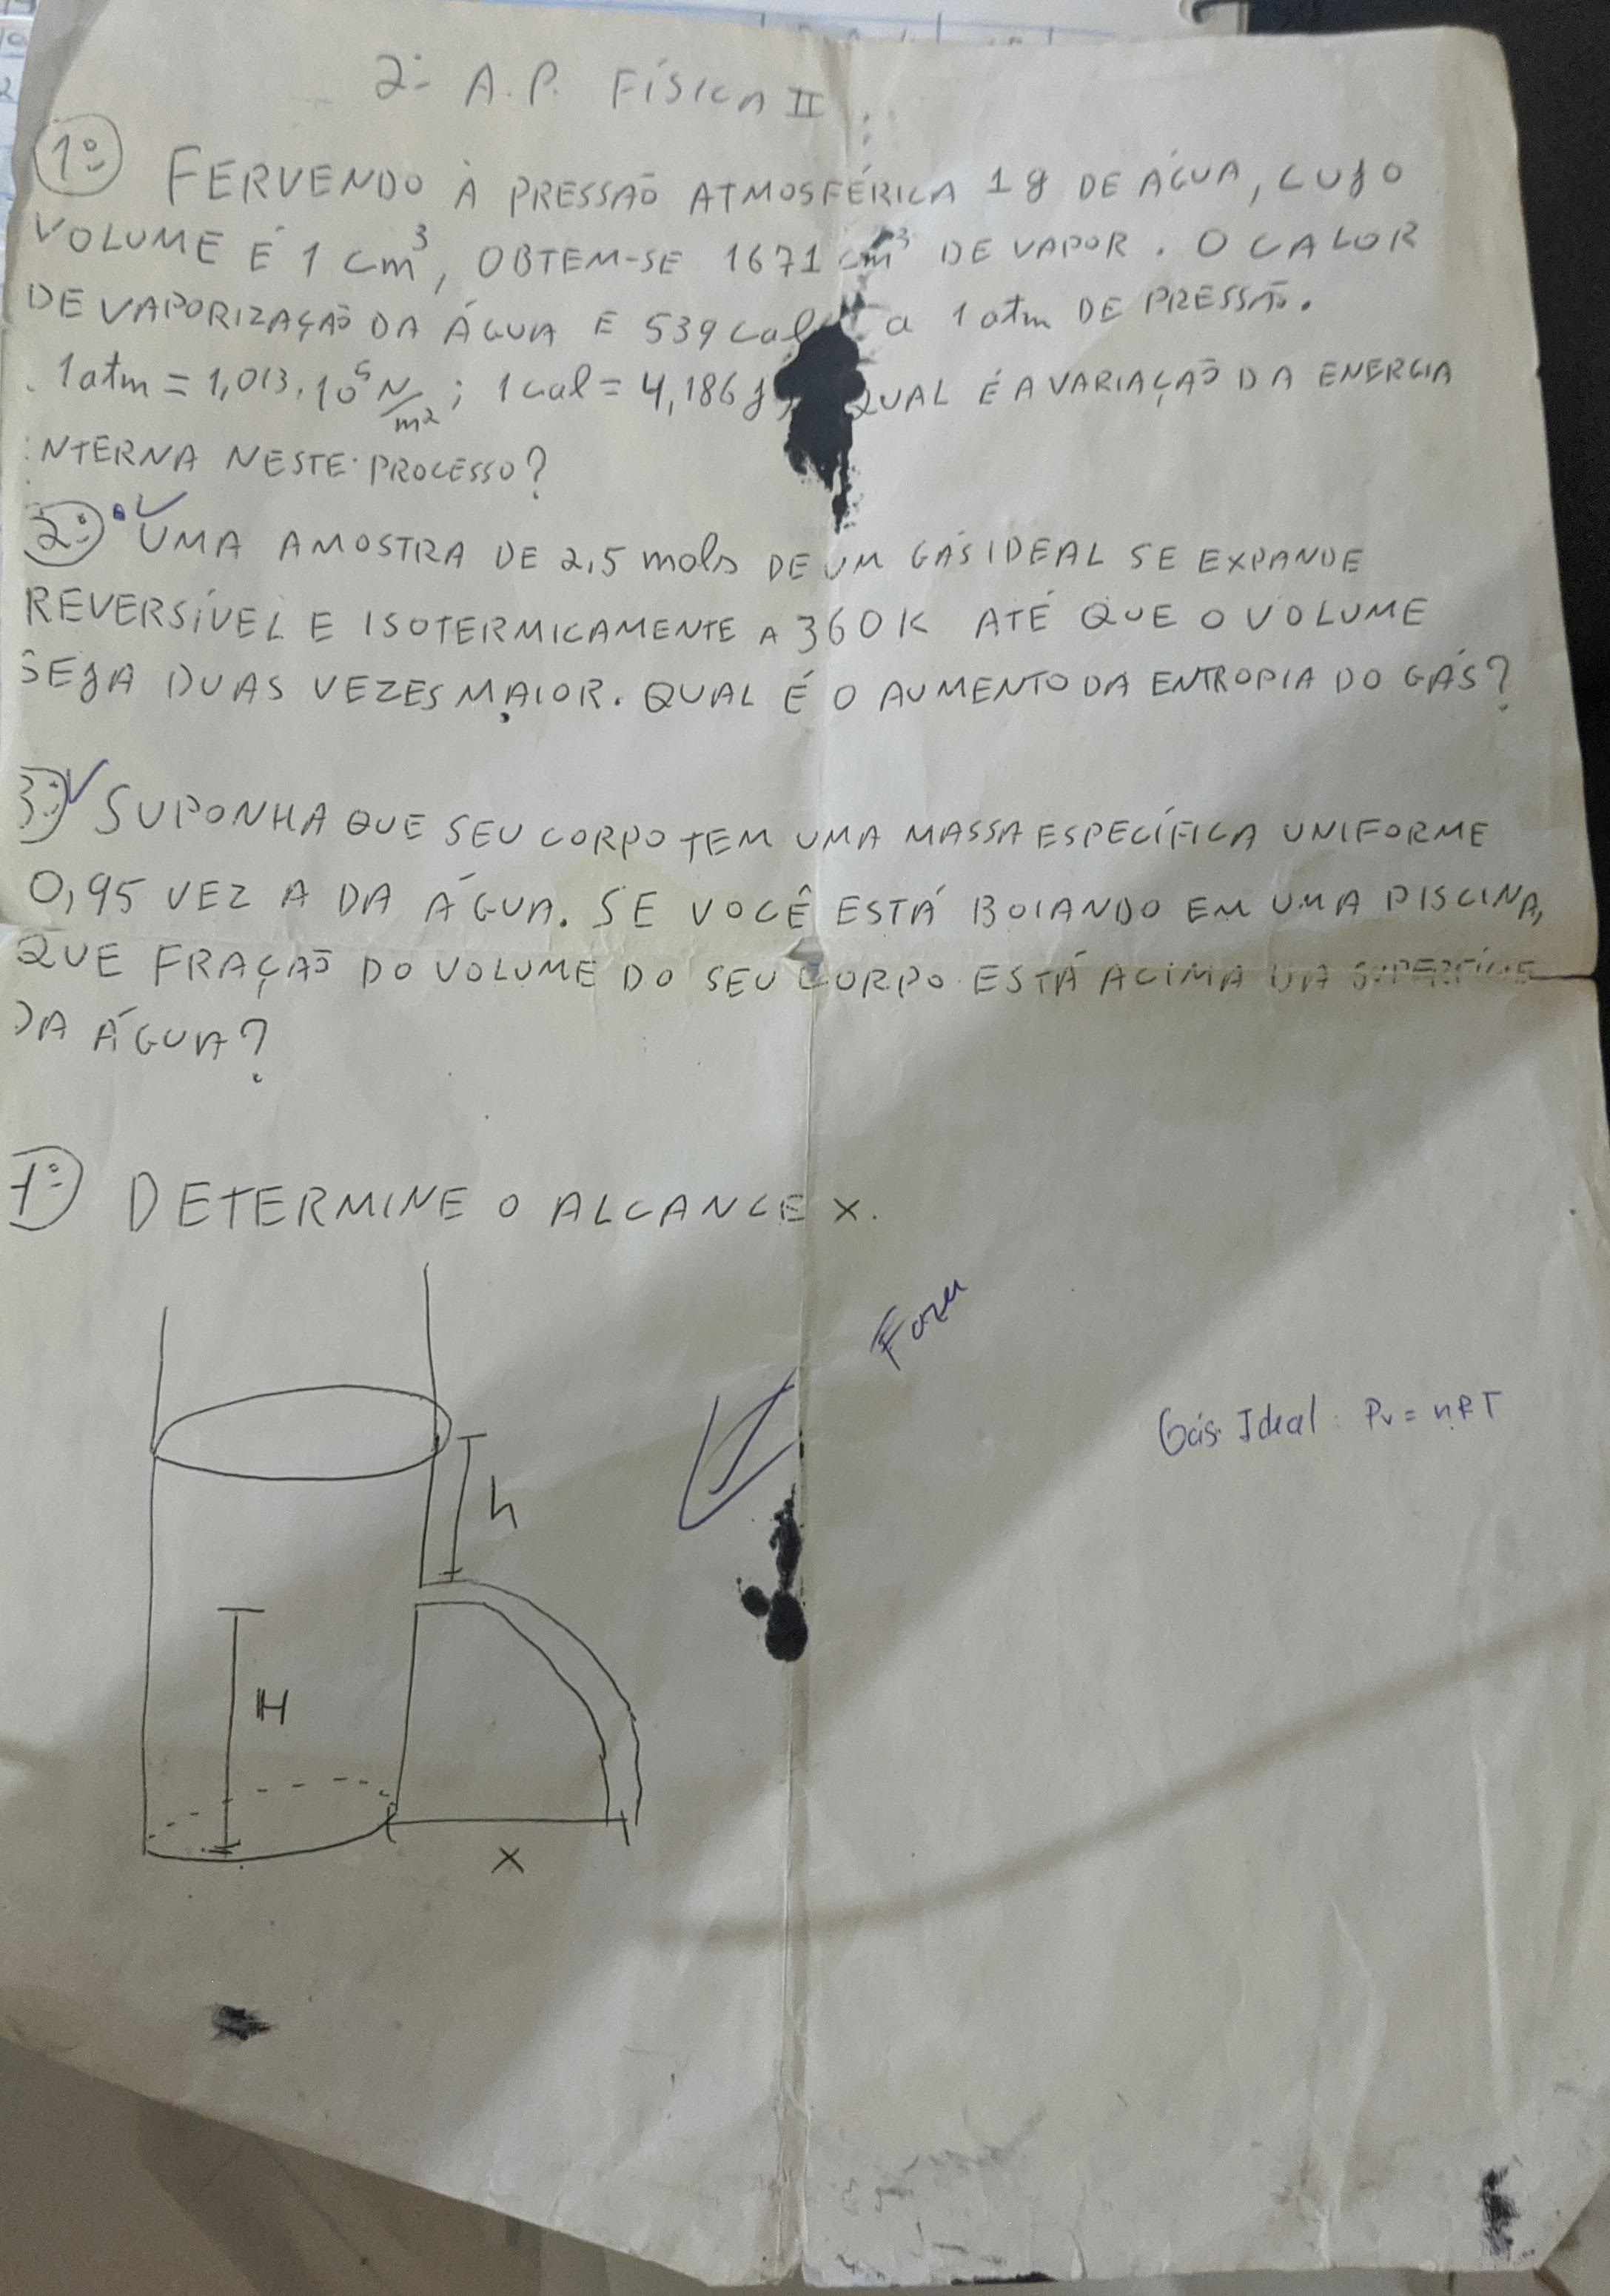 2º A.P. FÍSICA II
1º FERVENDO À PRESSÃO ATMOSFÉRICA 1g DE ÁGUA, CUJO
VOLUME É 1 cm³, OBTEM-SE 1671 cm³ DE VAPOR. O CALOR
DE VAPORIZAÇÃO DA ÁGUA E 539 cal a 1 atm DE PRESSÃO.
1 atm = 1,013.10⁵ N/m²; 1 cal = 4,186 J, QUAL É A VARIAÇÃO DA ENERGIA
NTERNA NESTE PROCESSO?
2º UMA AMOSTRA DE 2,5 mols DE UM GÁS IDEAL SE EXPANDE
REVERSÍVEL E ISOTERMICAMENTE A 360K ATÉ QUE O VOLUME
SEJA DUAS VEZES MAIOR. QUAL É O AUMENTO DA ENTROPIA DO GÁS?
3º SUPONHA QUE SEU CORPO TEM UMA MASSA ESPECÍFICA UNIFORME
0,95 VEZ A DA ÁGUA. SE VOCÊ ESTÁ BOIANDO EM UMA PISCINA,
QUE FRAÇÃO DO VOLUME DO SEU CORPO ESTÁ ACIMA DA SUPERFÍCIE
DA ÁGUA?
1º DETERMINE O ALCANCE X.
Gás Ideal: Pv = nRT
h
H
X